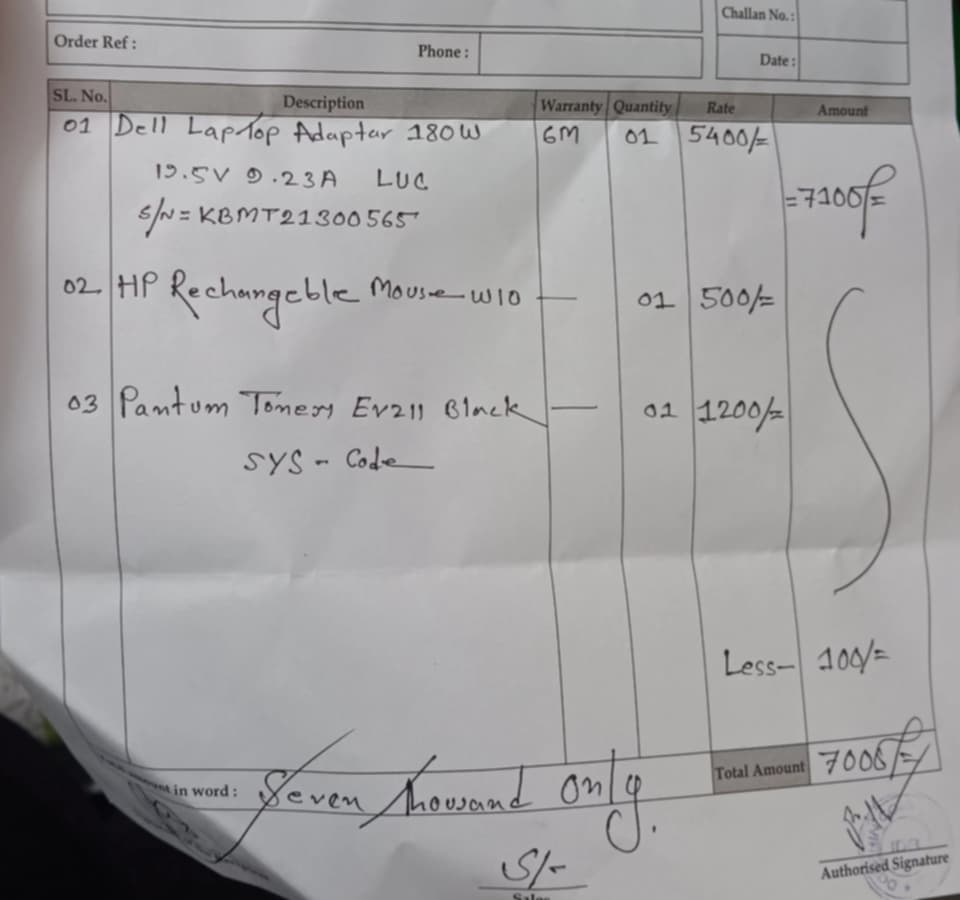 Challan No. :
Order Ref : Phone : Date :
SL. No. Description Warranty Quantity Rate Amount
01 Dell Laptop Adaptar 180W 6M 01 5400/=
19.5V 9.23A LUC
S/N = KBMT21300565
= 7100/=
02 HP Rechangeble Mouse W10 — 01 500/=
03 Pantum Toners EV211 Black — 01 1200/=
SYS - Code
Less - 100/=
Total Amount 7000/=
in word : Seven Thousand Only.
S/-
Authorised Signature